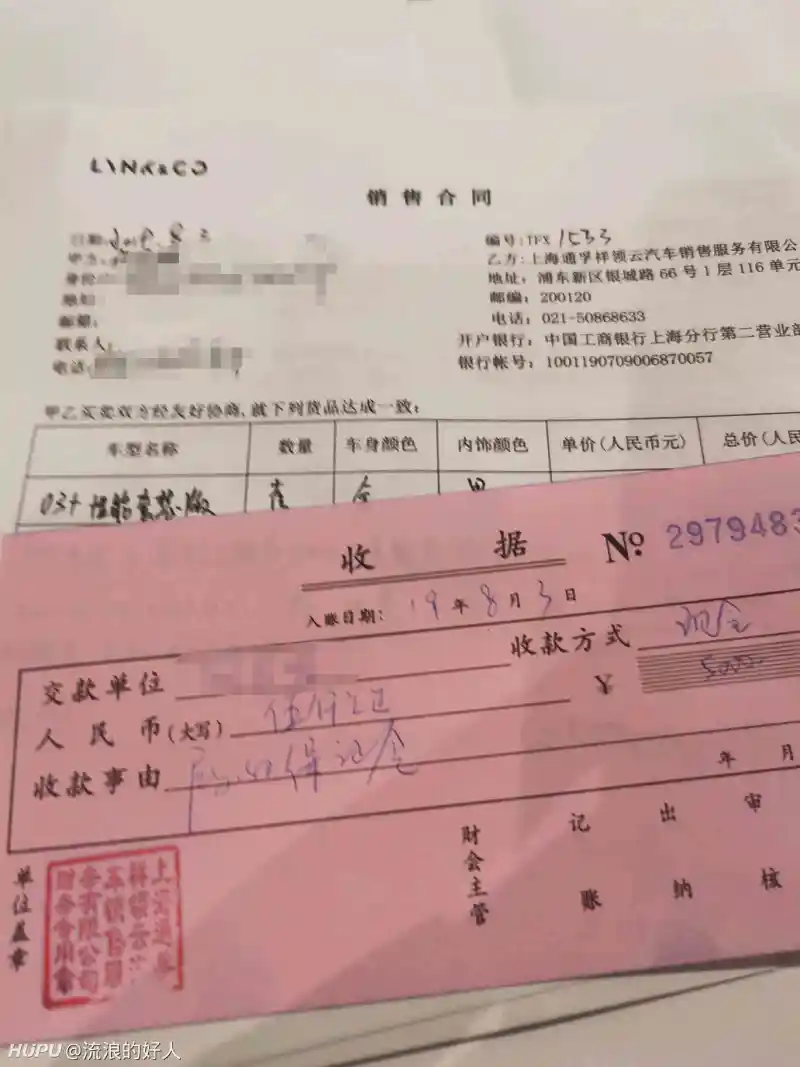 LYNK&CO
销售合同
日期: 2019.8.3
编号: TFX 1533
甲方:
乙方: 上海通孚祥领云汽车销售服务有限公
身份
地址: 浦东新区银城路66号1层116单元
地址:
邮编: 200120
邮编:
电话: 021-50868633
联系人:
开户银行: 中国工商银行上海分行第二营业部
电话:
银行帐号: 1001190709006870057
甲乙买卖双方经友好协商,就下列货品达成一致:
车型名称 数量 车身颜色 内饰颜色 单价(人民币元) 总价(人民
03+ 性能套装版 壹 金 黑
收据 No 2979483
入账日期: 19年8月3日
交款单位 收款方式 现金
人民币(大写) 伍仟元正 ¥ 5000
收款事由 保证金
年 月
财会主管 记账 出纳 审核
单位盖章
上海通孚祥领云汽车销售服务有限公司财务专用章
HUPU @流浪的好人